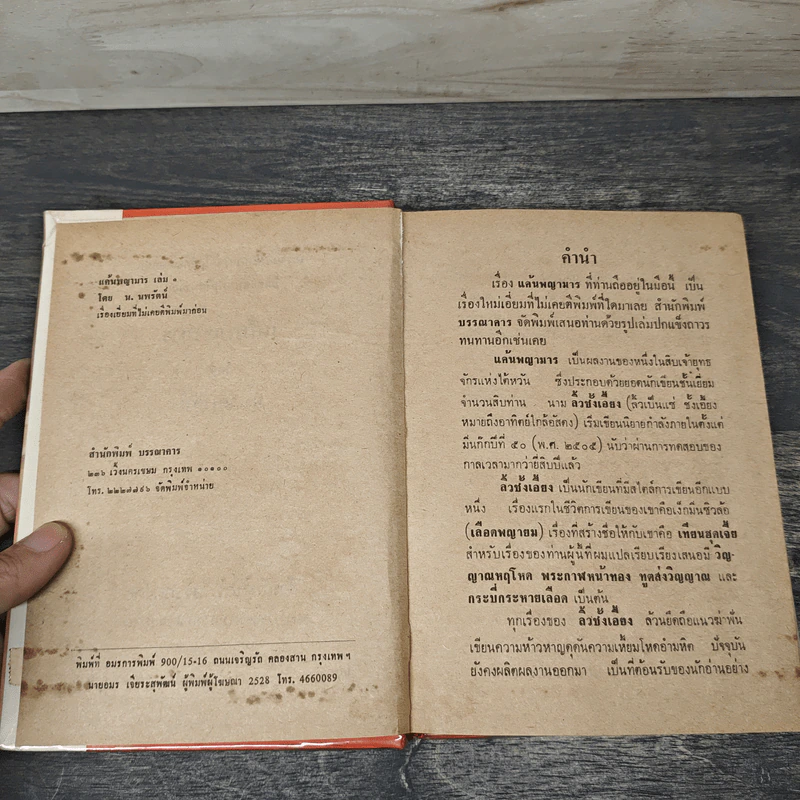 แค้นพญามาร เล่ม ๑
โดย น. นพรัตน์
เรื่องเยี่ยมที่ไม่เคยตีพิมพ์มาก่อน
สำนักพิมพ์ บรรณาคาร
๒๓๖ เวิ้งนครเขษม กรุงเทพ ๑๐๑๐๐
โทร. ๒๒๒๗๗๙๖ จัดพิมพ์จำหน่าย
พิมพ์ที่ อมรการพิมพ์ 900/15-16 ถนนเจริญรัถ คลองสาน กรุงเทพ ฯ
นายอมร เจียระสุพัฒน์ ผู้พิมพ์ผู้โฆษณา 2528 โทร. 4660089
คำนำ
เรื่อง แค้นพญามาร ที่ท่านถืออยู่ในมือนี้ เป็น
เรื่องใหม่เอี่ยมที่ไม่เคยตีพิมพ์ที่ใดมาเลย สำนักพิมพ์
บรรณาคาร จัดพิมพ์เสนอท่านด้วยรูปเล่มปกแข็งถาวร
ทนทานอีกเช่นเคย
แค้นพญามาร เป็นผลงานของหนึ่งในสิบเจ้ายุทธ
จักรแห่งไต้หวัน ซึ่งประกอบด้วยยอดนักเขียนชั้นเยี่ยม
จำนวนสิบท่าน นาม ลิ้วชังเอี้ยง (ลิ้วเป็นแซ่ ชังเอี้ยง
หมายถึงอาทิตย์ใกล้อัสดง) เริ่มเขียนนิยายกำลังภายในตั้งแต่
มีนกักปีที่ ๕๐ (พ.ศ. ๒๕๐๕) นับว่าผ่านการทดสอบของ
กาลเวลามากว่ายี่สิบปีแล้ว
ลิ้วชังเอี้ยง เป็นนักเขียนที่มีสไตล์การเขียนอีกแบบ
หนึ่ง เรื่องแรกในชีวิตการเขียนของเขาคือเง็กมึ้นซิวล้อ
(เลือดพญายม) เรื่องที่สร้างชื่อให้กับเขาคือ เทียนฮุดเจี้ย
สำหรับเรื่องของท่านผู้นี้ที่ผมแปลเรียบเรียงเสนอมี วิญ-
ญาณหฤโหด พระกาฬหน้าทอง ทูตส่งวิญญาณ และ
กระบี่กระหายเลือด เป็นต้น
ทุกเรื่องของ ลิ้วชังเอี้ยง ล้วนยึดถือแนวฆ่าฟัน
เขียนความห้าวหาญดุดันความเหี้ยมโหดอำมหิต ปัจจุบัน
ยังคงผลิตผลงานออกมา เป็นที่ต้อนรับของนักอ่านอย่าง